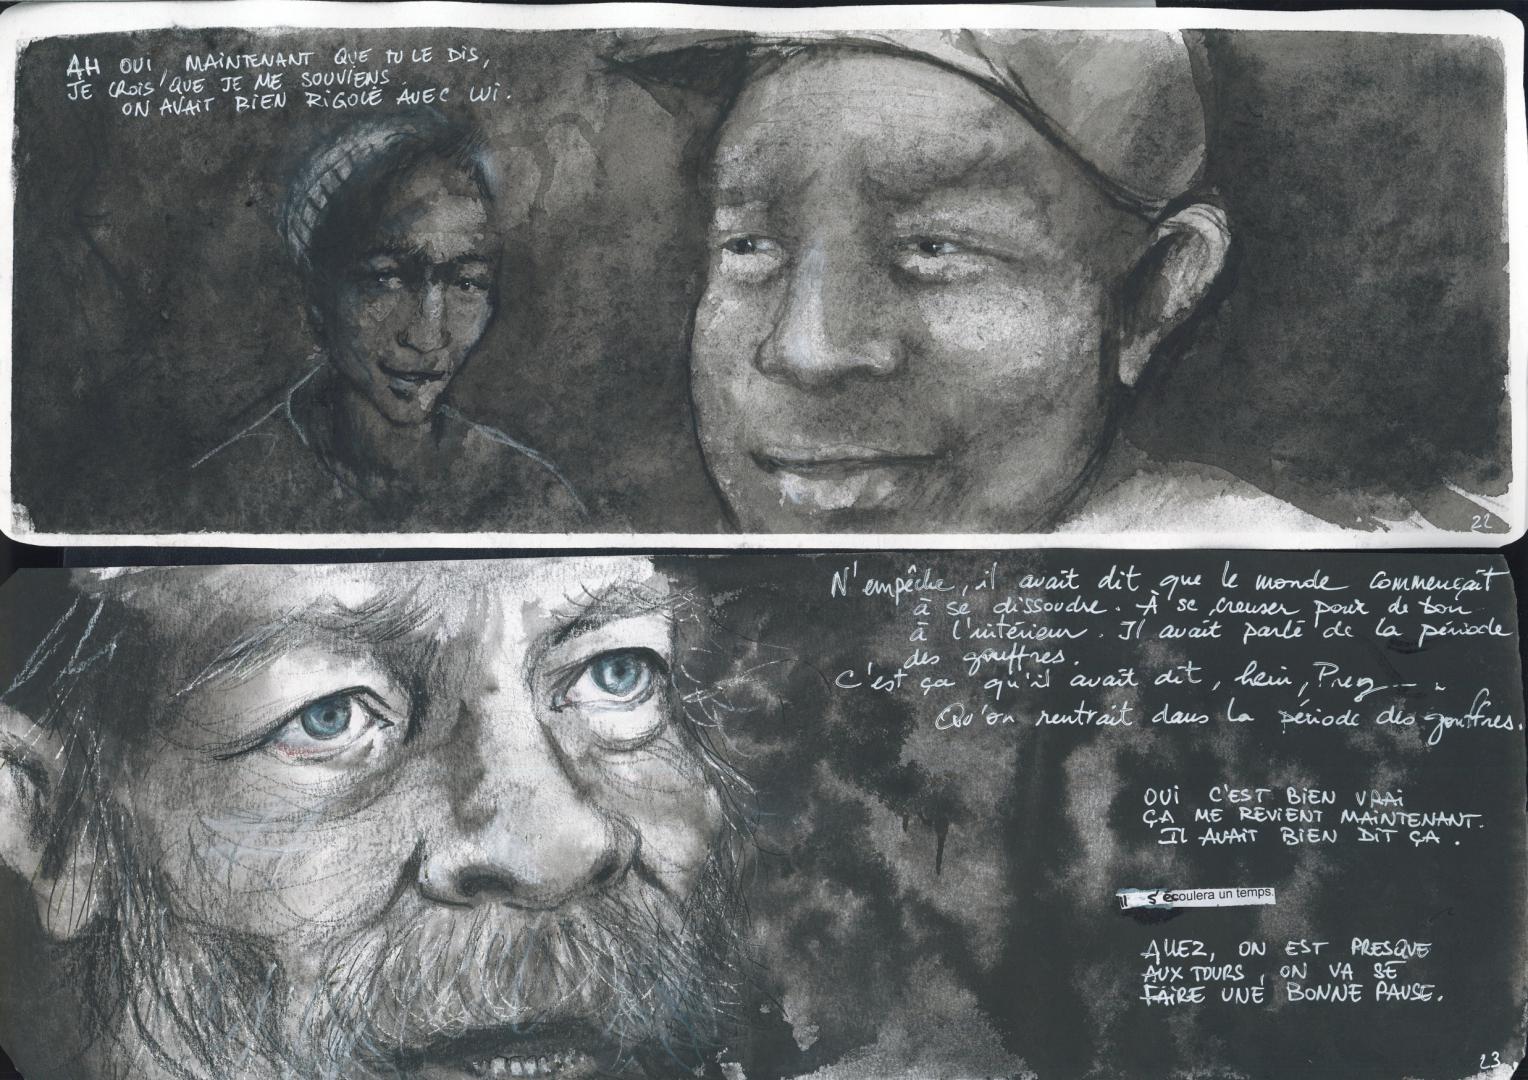 AH OUI MAINTENANT QUE TU LE DIS,
JE CROIS QUE JE ME SOUVIENS.
ON AVAIT BIEN RIGOLÉ AVEC LUI.
22
N'empêche, il avait dit que le monde commençait
à se dissoudre. À se creuser pour de bon
à l'intérieur. Il avait parlé de la période
des gouffres.
C'est ça qu'il avait dit, hein, Prez...
Qu'on rentrait dans la période des gouffres.
OUI C'EST BIEN VRAI
ÇA ME REVIENT MAINTENANT.
IL AVAIT BIEN DIT ÇA.
Il s'écoulera un temps.
ALLEZ, ON EST PRESQUE
AUX TOURS, ON VA SE
FAIRE UNE BONNE PAUSE.
23